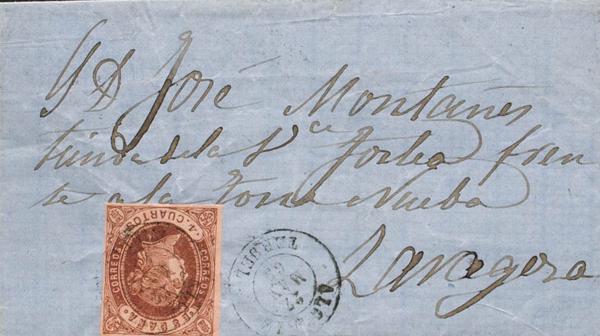 S D José Montañes
tienda de la Vda Forlea fren
te a la torre Nueba
Zaragoza
4 CUARTOS
CORREOS
TERUEL